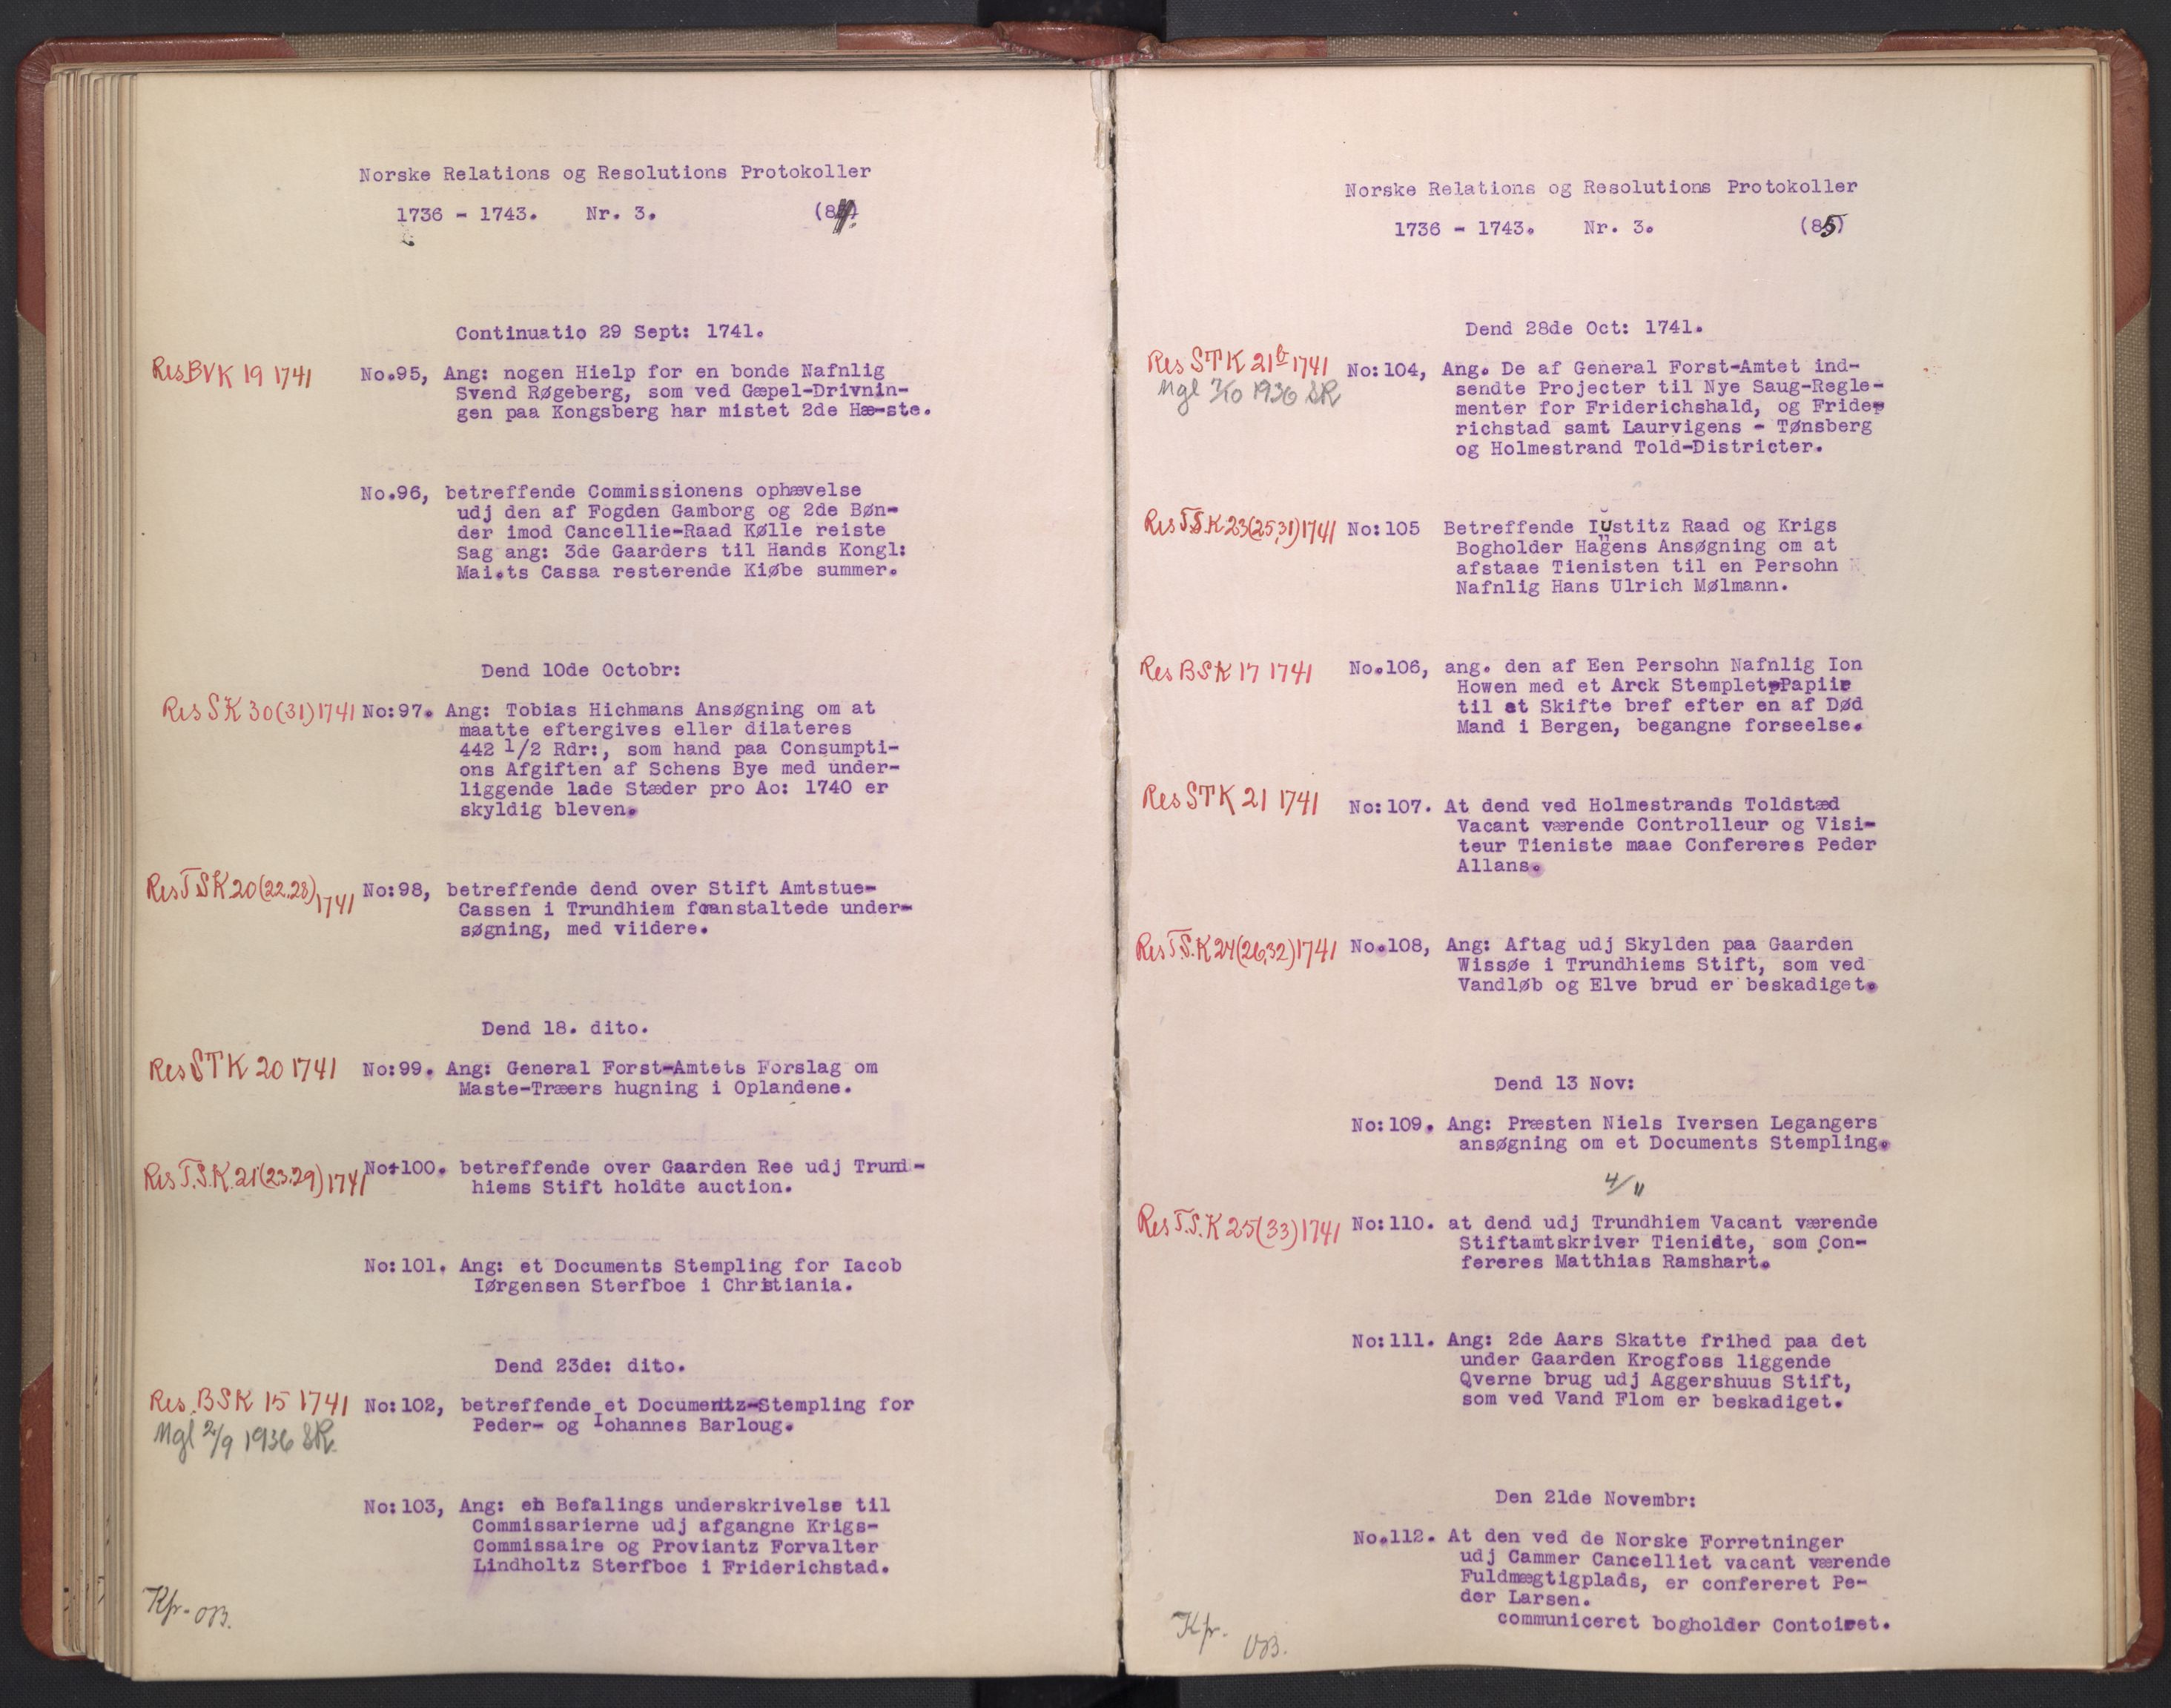 Norske Relations og Resolutions Protokoller
1736 - 1743. Nr. 3. (84)
Continuatio 29 Sept: 1741.
Res BVK 19 1741
No.95, Ang: nogen Hielp for en bonde Nafnlig
Svend Røgeberg, som ved Gæpel-Drivnin-
gen paa Kongsberg har mistet 2de Hæ-ste.
No.96, betreffende Commissionens ophævelse
udj den af Fogden Gamborg og 2de Bøn-
der imod Cancellie-Raad Kølle reiste
Sag ang: 3de Gaarders til Hands Kongl:
Mai.ts Cassa resterende Kiøbe summer.
Dend 10de Octobr:
Res SK 30(31)1741
No:97. Ang: Tobias Hichmans Ansøgning om at
maatte eftergives eller dilateres
442 1/2 Rdr:, som hand paa Consumpti-
ons Afgiften af Schens Bye med under-
liggende lade Stæder pro Ao: 1740 er
skyldig bleven.
Res TSK 20(22.28) 1741
No:98, betreffende dend over Stift Amtstue-
Cassen i Trundhiem foranstaltede under-
søgning, med viidere.
Dend 18. dito.
Res STK 20 1741
No:99. Ang: General Forst-Amtets Forslag om
Maste-Træers hugning i Oplandene.
Res T.S.K. 21(23.29)1741
No:100. betreffende over Gaarden Ree udj Trund-
hiems Stift holdte auction.
No:101. Ang: et Documents Stempling for Iacob
Iørgensen Sterfboe i Christiania.
Dend 23de: dito.
Res. BSK 15 1741
Mgl 2/9 1936 SR.
No:102, betreffende et Documentz-Stempling for
Peder- og Iohannes Barloug.
No:103, Ang: en Befalings underskrivelse til
Commissarierne udj afgangne Krigs-
Commissaire og Proviantz Forvalter
Lindholtz Sterfboe i Friderichstad.
Kfr. OB.
Norske Relations og Resolutions Protokoller
1736 - 1743. Nr. 3. (85)
Dend 28de Oct: 1741.
Res STK 21b 1741
Mgl 7/10 1936 SR
No:104, Ang. De af General Forst-Amtet ind-
sendte Projecter til Nye Saug-Regle-
menter for Friderichshald, og Fride-
richstad samt Laurvigens - Tønsberg
og Holmestrand Told-Districter.
Res T.S.K 23(25,31)1741
No:105 Betreffende Iustitz Raad og Krigs
Bogholder Hagens Ansøgning om at
afstaae Tienisten til en Persohn
Nafnlig Hans Ulrich Mølmann.
Res BSK 17 1741
No.106, ang. den af Een Persohn Nafnlig Ion
Howen med et Arck Stemplet-Papiir
til et Skifte bref efter en af Død
Mand i Bergen, begangne forseelse.
Res STK 21 1741
No:107. At dend ved Holmestrands Toldstæd
Vacant værende Controlleur og Visi-
teur Tieniste maae Confereres Peder
Allans.
Res T.S.K 24(26,32)1741
No.108, Ang: Aftag udj Skylden paa Gaarden
Wissøe i Trundhiems Stift, som ved
Vandløb og Elve brud er beskadiget.
Dend 13 Nov:
No:109. Ang: Præsten Niels Iversen Legangers
ansøgning om et Documents Stempling.
4/11
Res T.S.K 25(33)1741
No:110. at dend udj Trundhiem Vacant værende
Stiftamtskriver Tienidte, som Con-
fereres Matthias Ramshart.
No:111. Ang: 2de Aars Skatte frihed paa det
under Gaarden Krogfoss liggende
Qverne brug udj Aggershuus Stift,
som ved Vand Flom er beskadiget.
Den 21de Novembr:
No.112. At den ved de Norske Forretninger
udj Cammer Cancelliet vacant værende
Fuldmægtigplads, er confereret Pe-
der Larsen.
communiceret bogholder Contoiret.
Kfr. OB.